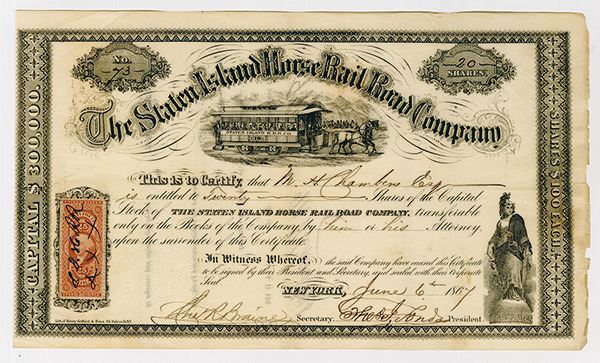 No. 73
20 SHARES.
The Staten Island Horse Rail Road Company
CAPITAL $ 300,000.
SHARES $ 100 EACH.
This is to Certify, that M. H. Chambers Esq
is entitled to Twenty Shares of the Capital
Stock of THE STATEN ISLAND HORSE RAIL ROAD COMPANY, transferable
only on the Books of the Company, by him or his Attorney
upon the surrender of this Certificate.
In Witness Whereof, the said Company have caused this Certificate
to be signed by their President and Secretary, and sealed with their Corporate
Seal.
NEW YORK, June 6th 1867
Secretary.
President